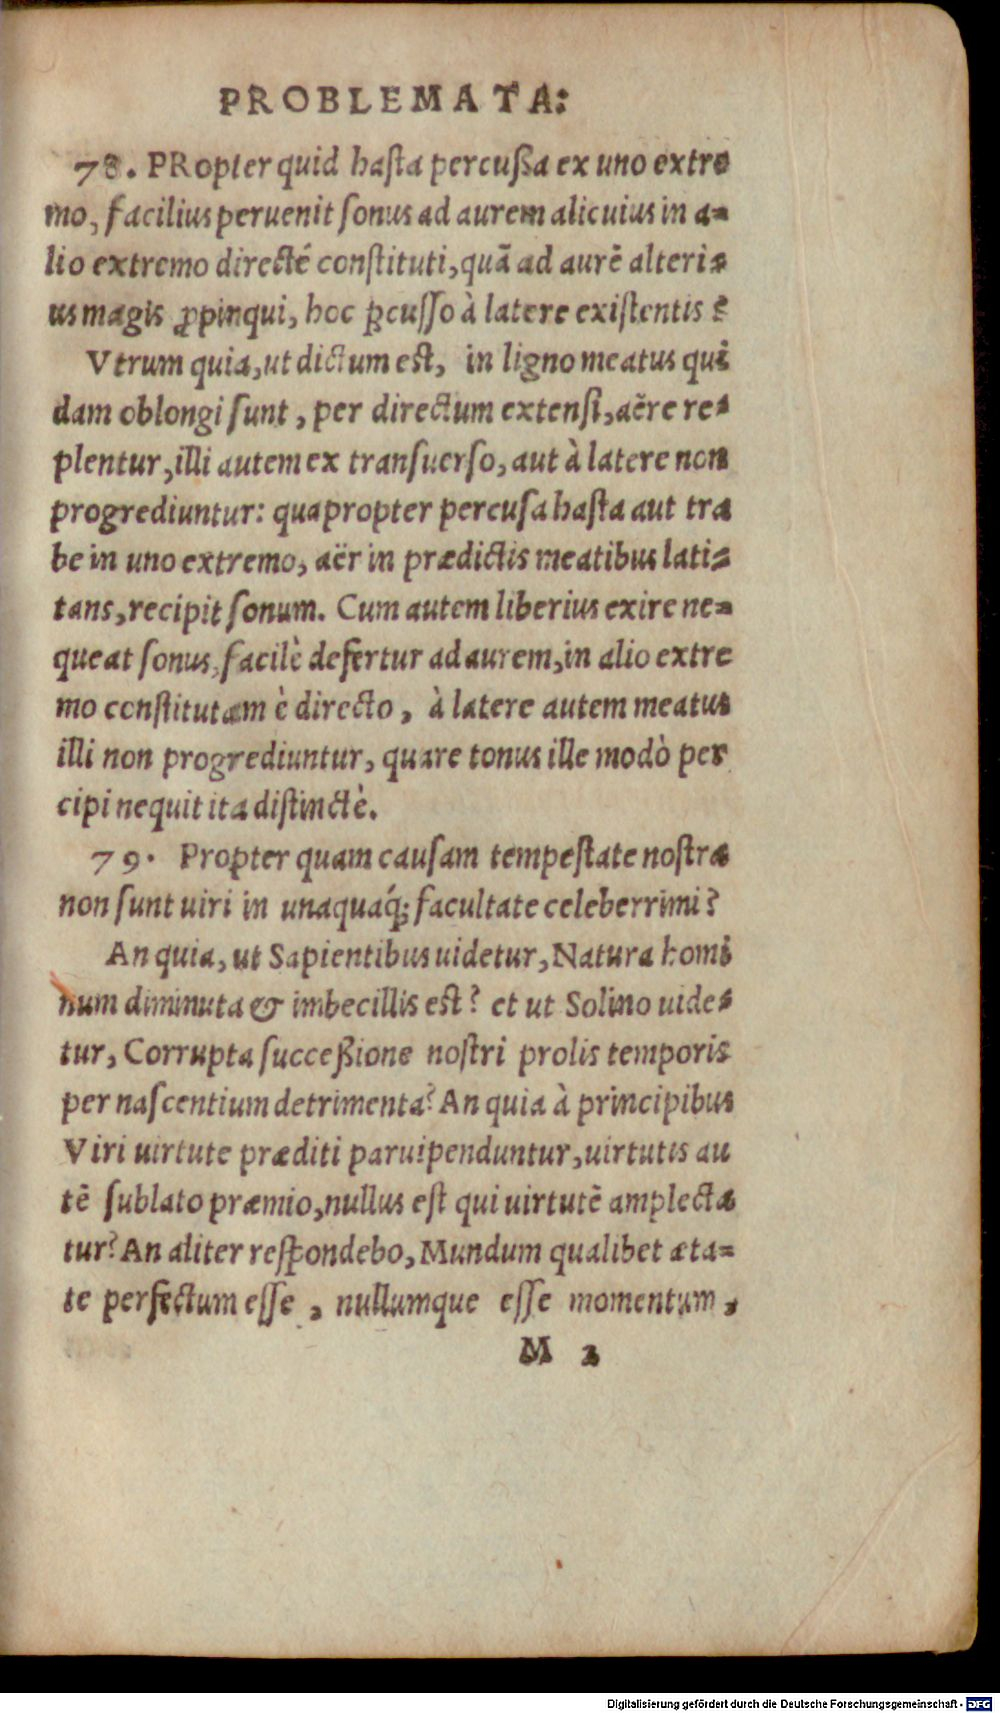 PROBLEMATA:
78. PRopter quid haſta percußa ex uno extre
mo, facilius peruenit ſonus ad aurem alicuius in a=
lio extremo directé conſtituti, quā ad aurē alteri=
us magis ꝓpinqui, hoc ꝑcuſſo à latere exiſtentis?
Vtrum quia, ut dictum eſt, in ligno meatus qui
dam oblongi ſunt, per directum extenſi, aëre re=
plentur, illi autem ex tranſuerſo, aut à latere non
progrediuntur: quapropter percuſa haſta aut tra
be in uno extremo, aër in prædictis meatibus lati=
tans, recipit ſonum. Cum autem liberius exire ne=
queat ſonus, facilè defertur ad aurem, in alio extre
mo conſtitutam è directo, à latere autem meatus
illi non progrediuntur, quare tonus ille modò per
cipi nequit ita diſtinctè.
79. Propter quam cauſam tempeſtate noſtra
non ſunt uiri in unaquaq́; facultate celeberrimi?
An quia, ut Sapientibus uidetur, Natura homi
num diminuta & imbecillis eſt? et ut Solino uide=
tur, Corrupta ſucceßione noſtri prolis temporis
per naſcentium detrimenta? An quia à principibus
Viri uirtute præditi paruipenduntur, uirtutis au
tē ſublato præmio, nullus eſt qui uirtutē amplecta
tur? An aliter reſpondebo, Mundum qualibet æta=
te perfectum eſſe, nullumque eſſe momentum,
M 2
Digitalisierung gefördert durch die Deutsche Forschungsgemeinschaft - DFG